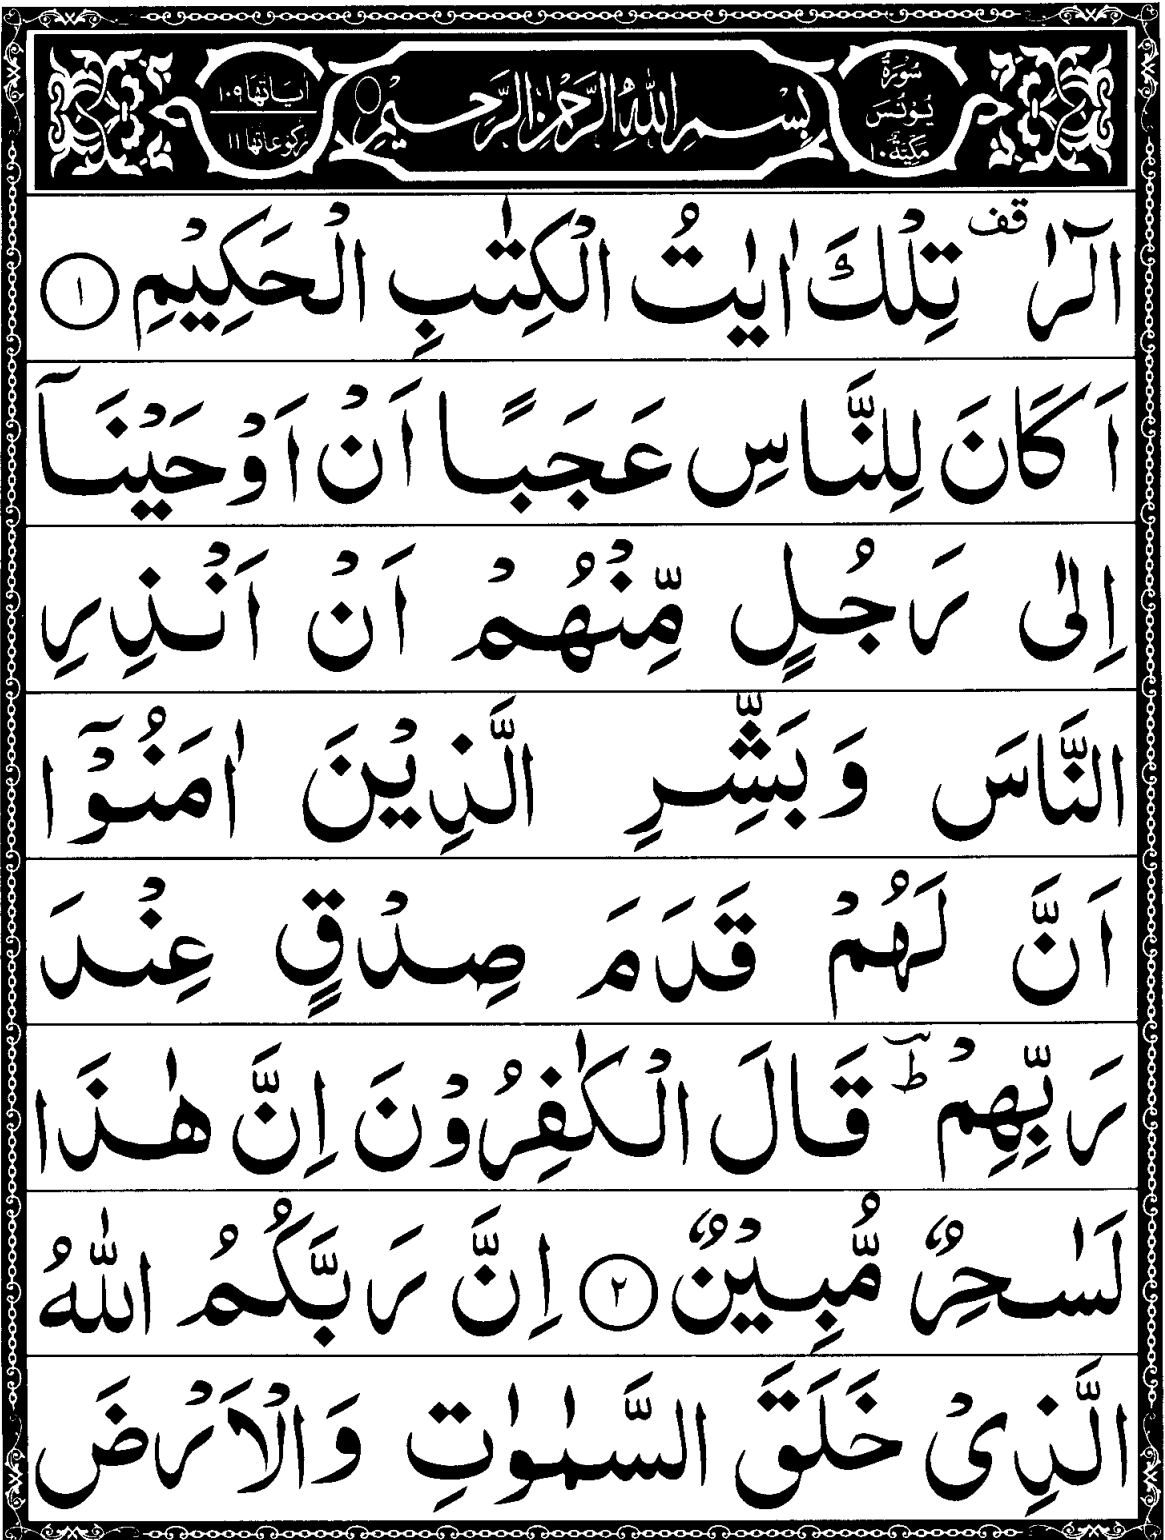 سُوْرَةُ يُوْنُسَ مَكِّيَّةٌ ١٠
بِسْمِ اللّٰهِ الرَّحْمٰنِ الرَّحِيْمِ
اٰيَاتُهَا ١٠٩
رُكُوْعَاتُهَا ١١
الٓرٰ قف تِلْكَ اٰيٰتُ الْكِتٰبِ الْحَكِيْمِ ١
اَكَانَ لِلنَّاسِ عَجَبًا اَنْ اَوْحَيْنَاۤ
اِلٰى رَجُلٍ مِّنْهُمْ اَنْ اَنْذِرِ
النَّاسَ وَبَشِّرِ الَّذِيْنَ اٰمَنُوْۤا
اَنَّ لَهُمْ قَدَمَ صِدْقٍ عِنْدَ
رَبِّهِمْ ؕ قَالَ الْكٰفِرُوْنَ اِنَّ هٰذَا
لَسٰحِرٌ مُّبِيْنٌ ٢ اِنَّ رَبَّكُمُ اللّٰهُ
الَّذِىْ خَلَقَ السَّمٰوٰتِ وَالْاَرْضَ